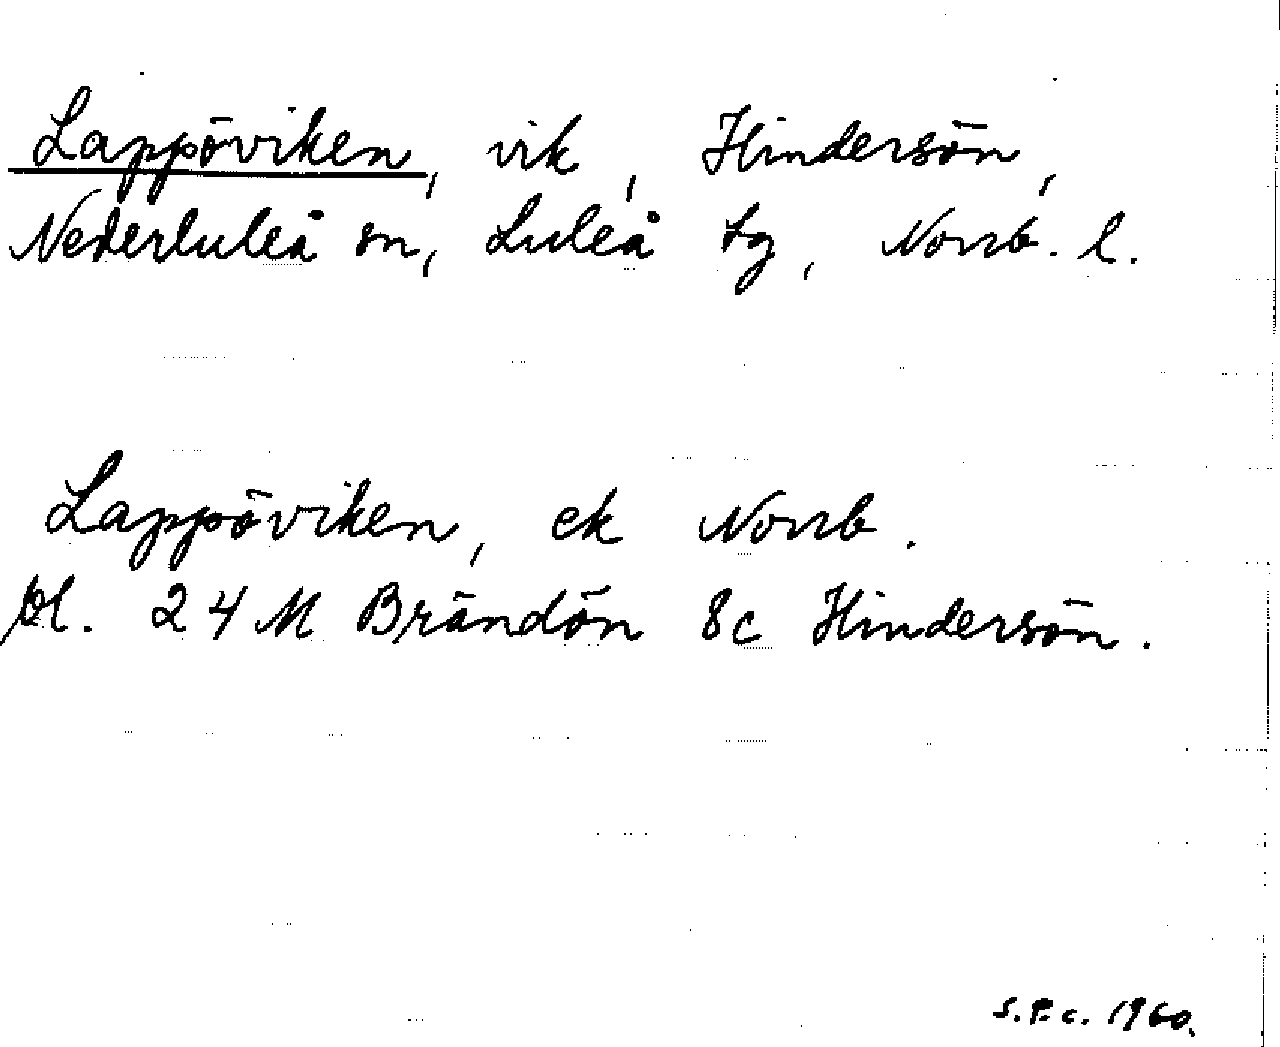 Lappöviken, vik, Hindersön,
Nederluleå sn, Luleå tg, Norrb. l.
Lappöviken, ek Norrb.
bl. 24 M Brändön 8c Hindersön.
S.P.c. 1960.